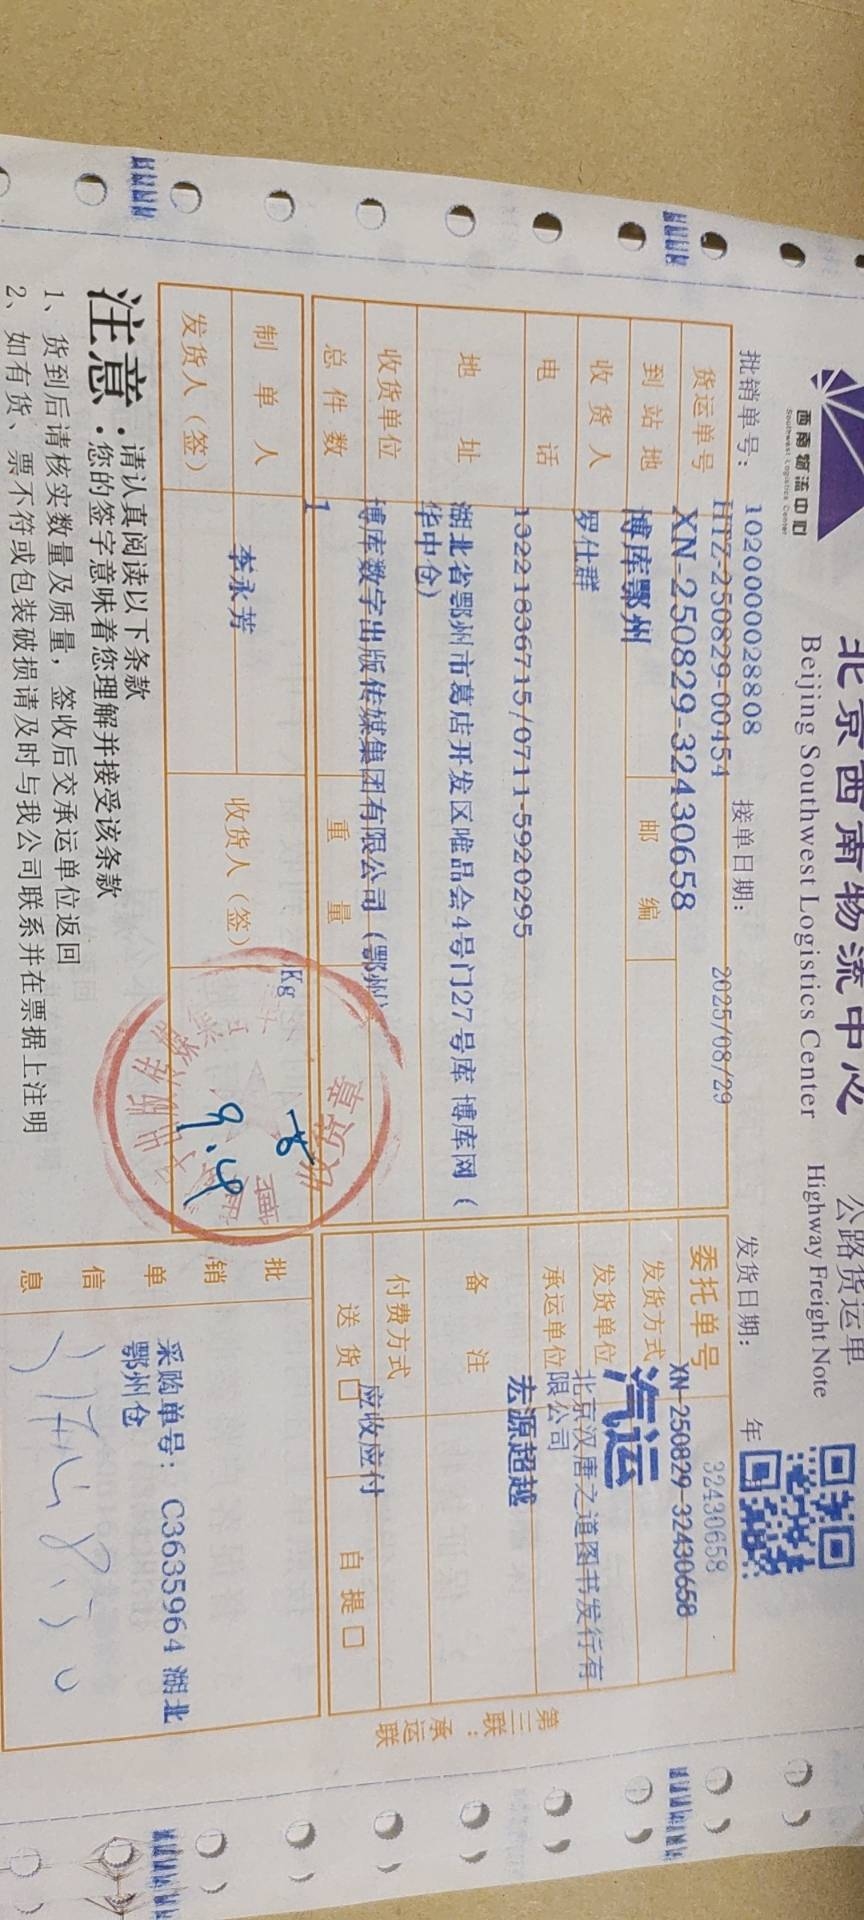 西南物流中心
Southwest Logistics Center
北京西南物流中心 公路货运单
Beijing Southwest Logistics Center Highway Freight Note
批销单号: 102000028808 接单日期: 2025/08/29 发货日期: 年
HTZ-250829-00454 32430658
货运单号 XN-250829-32430658 委托单号 XN-250829-32430658
到站地 博库鄂州 邮编 发货方式 汽运
收货人 罗仕群 发货单位 北京汉唐之道图书发行有
限公司
电话 13221836715/0711-5920295 承运单位 宏源超越
地址 湖北省鄂州市葛店开发区唯品会4号门27号库 博库网(
华中仓) 备注
收货单位 博库数字出版传媒集团有限公司(鄂州) 付费方式 应收应付
总件数 1 重量 Kg 送货□ 自提□
制单人 李永芳 收货人(签)
发货人(签)
9.4
批销单信息 采购单号: C3635964 湖北
鄂州仓
注意:请认真阅读以下条款
您的签字意味着您理解并接受该条款
1、货到后请核实数量及质量,签收后交承运单位返回
2、如有货、票不符或包装破损请及时与我公司联系并在票据上注明
第三联:承运联